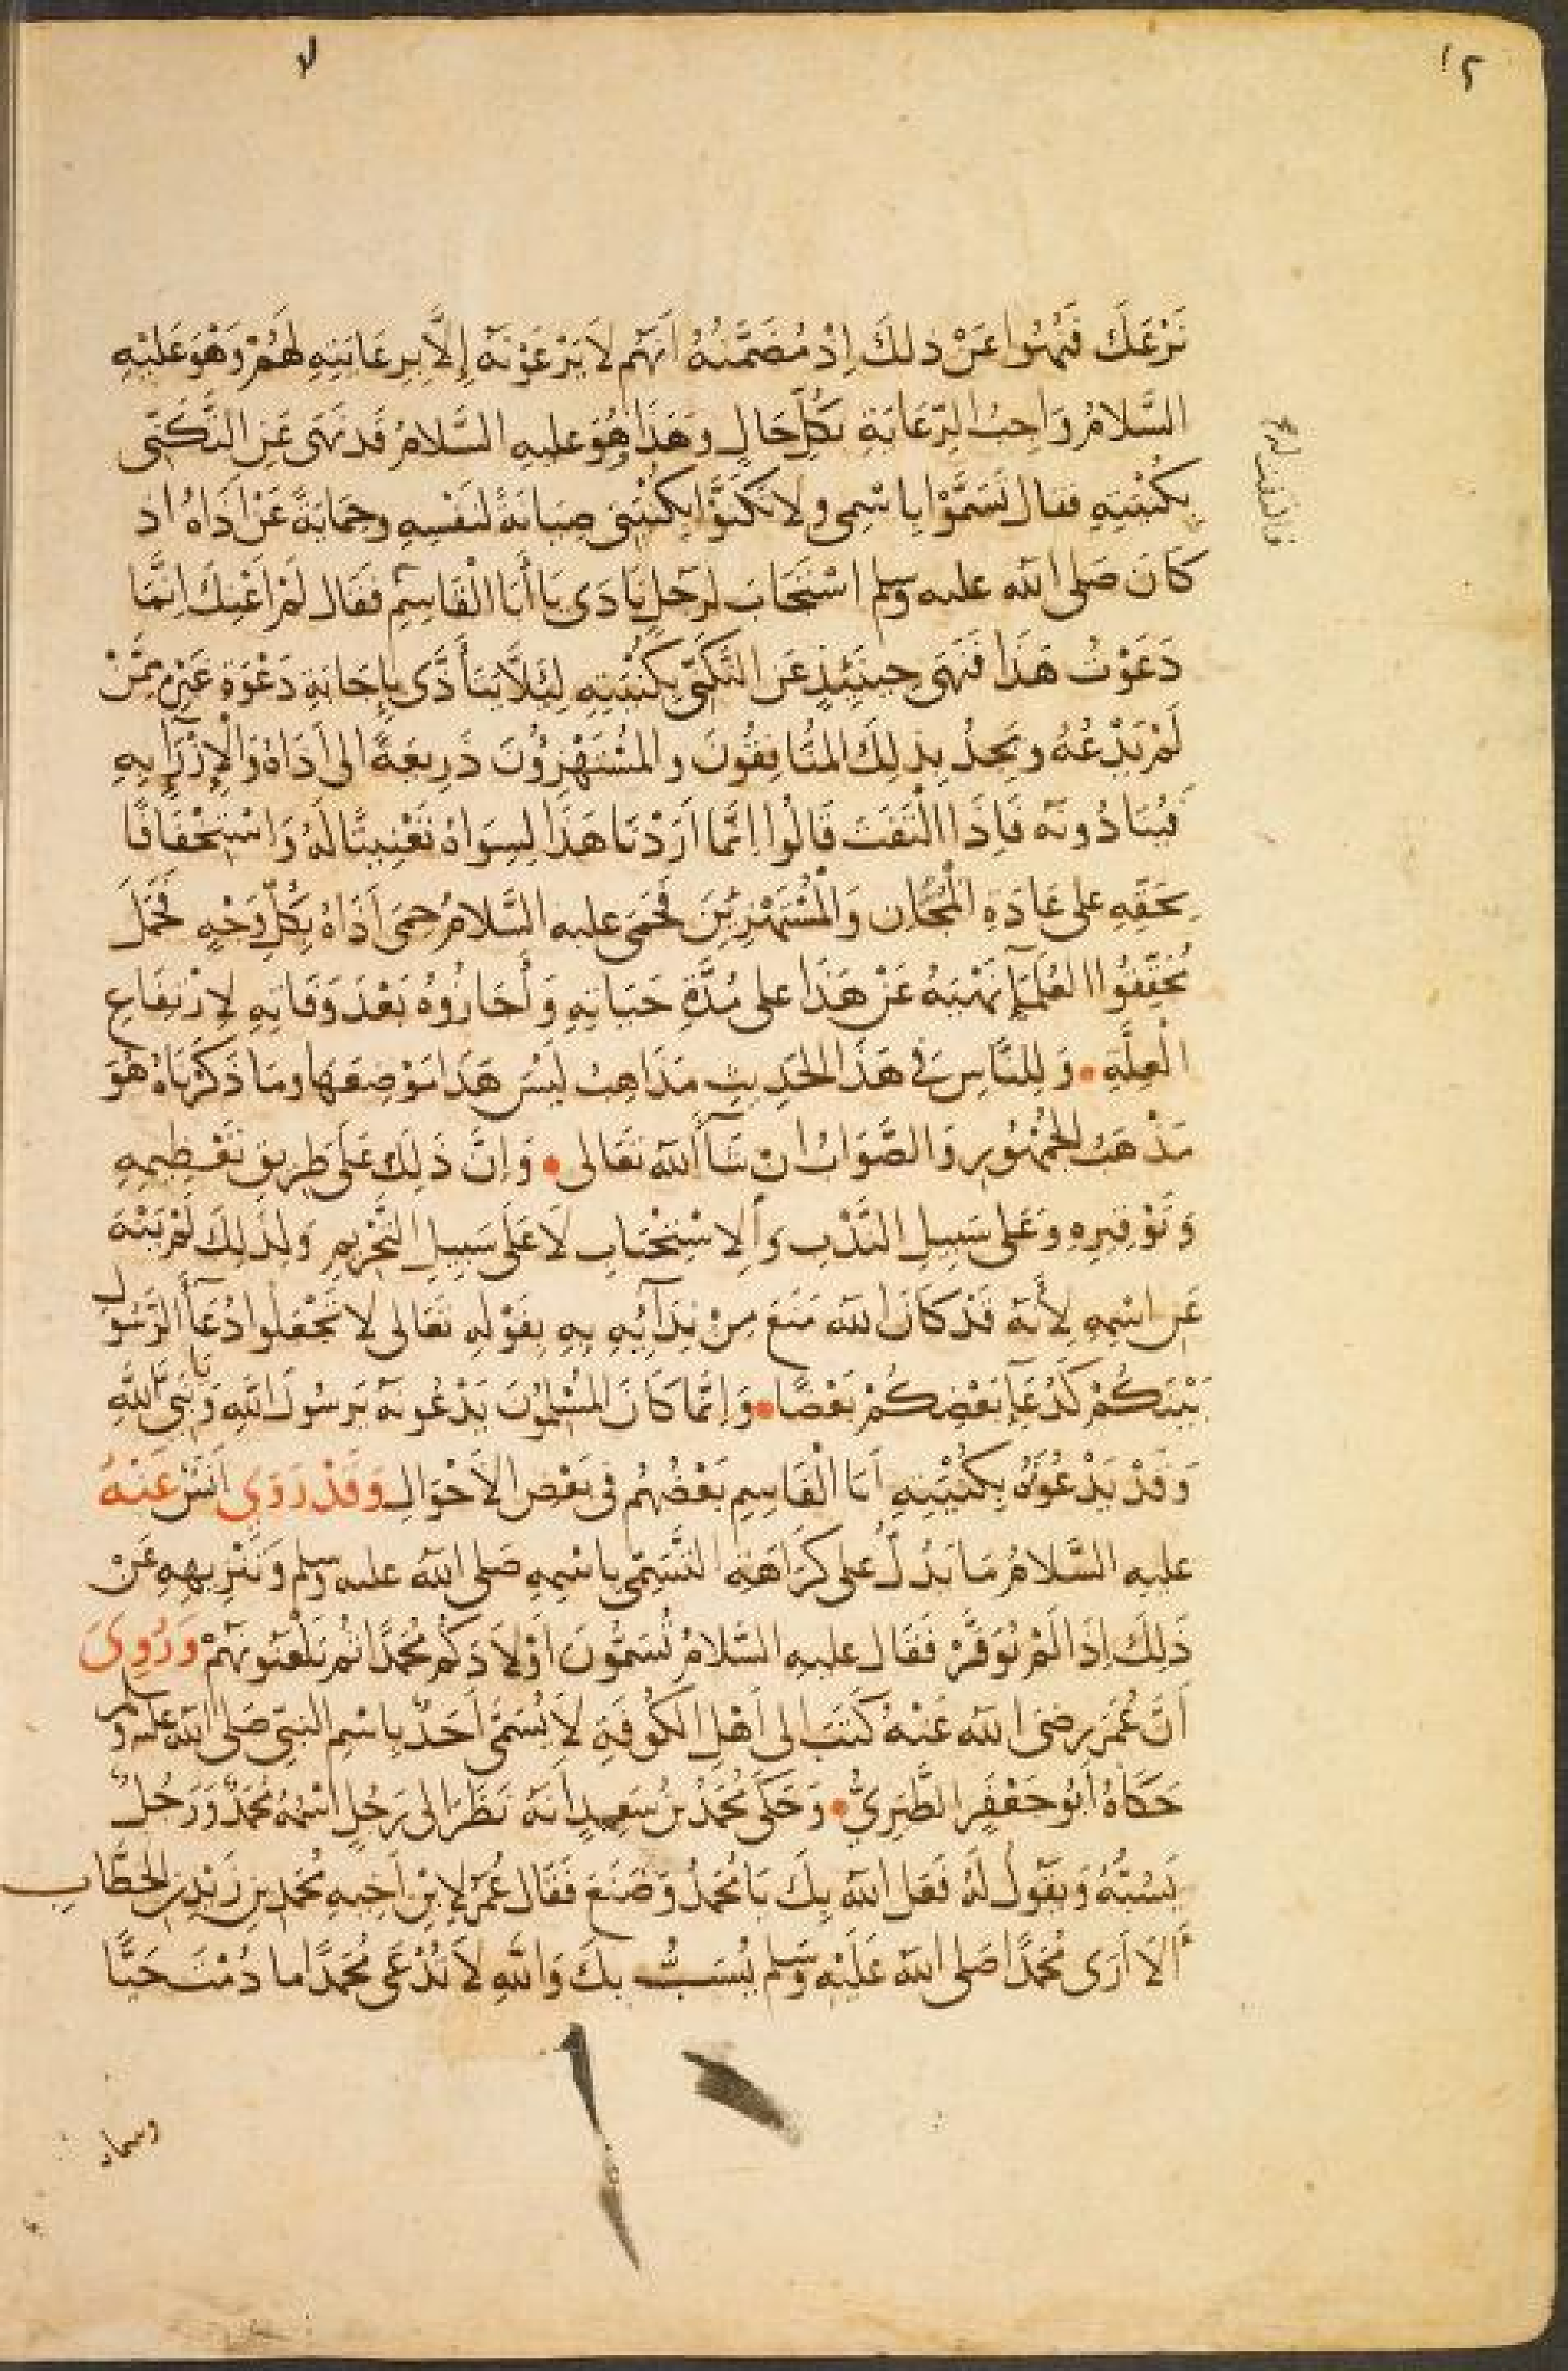 نَرْعَكَ فَنُهُوا عَنْ ذلِكَ اِذْ مُضَمَّنُهُ اَنَّهُم لَا يَرْعَوْنَهُ اِلَّا بِرِعَايَتِهِ لَهُمْ وَهْوَ عَلَيْهِ
السَّلَامُ وَاجِبُ الرِّعَايَةِ بِكُلِّ حَالٍ وَهَذَا هُوَ عليهِ السَّلَامُ قَد نَهَى عَنِ التَّكَنِّى
بِكُنْيَتِهِ فقال تَسَمَّوْا بِاسْمِى ولا تَكَنَّوْا بِكُنْيَتِى صِيَانَةً لنَفْسِهِ وحِمَايَةً عَنْ اَذَاهُ اذ
كَانَ صَلى الله عليه وسلم اسْتَجَابَ لرَجُلٍ نَادَى يَا أَبَا الْقَاسِمِ فقَال لَمْ اَعْنِكَ اِنَّمَا
دَعَوْتُ هَذَا فَنَهَى حِينَئِذٍ عَنِ التَّكَنِّى بِكُنْيَتِهِ لِئَلَّا يَتَأَذَّى بِاِجَابَةِ دَعْوَةِ غَيْرِهِ مِمَّنْ
لَمْ يَدْعُهُ ويَجِدُ بِذلِكَ المُنَافِقُونَ والمُسْتَهْزِؤُنَ ذَرِيعَةً الى اَذَاهُ وَالْاِزْرَآءِ بِهِ
فَيُنَادُونَه فَاِذَا الْتَفَتَ قَالُوا اِنَّمَا اَرَدْنَا هَذَا لِسِوَاهُ تَعْنِيتًا لَهُ وَاسْتِخْفَافًا
بِحَقِّهِ على عَادَةِ الْمُجَّانِ وَالْمُسْتَهْزِئِينَ فَحَمَى عليه السَّلامُ حِمَى اَذَاهُ بِكُلِّ وَجْهٍ فَحَمَلَ
مُحَقِّقُوا العُلَمَآءِ نَهْيَهُ عَنْ هَذَا على مُدَّةِ حَيَاتِهِ وَاَجَازُوهُ بَعْدَ وَفَاتِهِ لِارْتِفَاعِ
الْعِلَّةِ • وَلِلنَّاسِ فى هَذَا الحَدِيثِ مَذَاهِبُ لَيْسَ هَذَا مَوْضِعَهَا ومَا ذَكَرْنَاهُ هُوَ
مَذْهَبُ الجُمْهُورِ وَالصَّوَابُ اِنْ شَآءَ الله تَعَالى • وَاِنَّ ذَلِكَ عَلَى طَرِيقِ تَعْظِيمِهِ
وَتَوْقِيرِهِ وَعَلَى سَبِيلِ النَّدْبِ وَالاسْتِحْبَابِ لَا عَلَى سَبِيلِ التَّحْرِيمِ وَلِذَلِكَ لَمْ يَنْهَ
عَنِ اسْمِهِ لِأَنَّهُ قَدْ كَانَ الله مَنَعَ مِنْ نِدَآئِهِ بِهِ بِقَوْلِهِ تَعَالى لا تَجْعَلُوا دُعَآءَ الرَّسُولِ
بَيْنَكُمْ كَدُعَآءِ بَعْضِكُمْ بَعْضًا • وَاِنَّمَا كَانَ المُسْلِمُونَ يَدْعُونَهُ بِرَسُولِ اللهِ وَيَا نَبِىَّ اللهِ
وَقَدْ يَدْعُونَهُ بِكُنْيَتِهِ اَبَا الْقَاسِمِ بَعْضُهُم فى بَعْضِ الاَحْوَالِ وَقَدْ رَوَى اَنَسٌ عَنْهُ
عليهِ السَّلَامُ مَا يَدُلُّ على كَرَاهَةِ التَّسَمِّى بِاسْمِهِ صَلى الله عليه وسلم وَتَنْزِيهِهِ عَنْ
ذَلِكَ اِذَا لَمْ يُوَقَّرْ فَقَال عليهِ السَّلَامُ تُسَمُّونَ اَوْلَادَكُم مُحَمَّدًا ثُم تَلْعَنُونَهُمْ وَرُوِىَ
اَنَّ عُمَرَ رضى الله عَنْهُ كَتَبَ الى اَهْلِ الكُوفَةِ لَا يُسَمَّى اَحَدٌ بِاسْمِ النبِىِّ صَلى الله عليه وسلم
حَكَاهُ اَبُو جَعْفَرٍ الطَّبَرِىُّ • وَحَكَى مُحَمَّدُ بْنُ سَعِيدٍ اَنَّهُ نَظَرَ الى رَجُلٍ اسْمُهُ مُحَمَّدٌ وَرَجُلٌ
يَسُبُّهُ وَيَقُولُ لَهُ فَعَلَ الله بِكَ يَا مُحَمَّدُ وَصَنَعَ فَقَال عُمَرُ لِابْنِ اَخِيهِ مُحَمَّدِ بنِ زَيْدِ بْنِ الخَطَّابِ
اَلَا اَرَى مُحَمَّدًا صَلى الله عَلَيْهِ وَسَلم يُسَبُّ بِكَ وَاللهِ لَا تُدْعَى مُحَمَّدًا ما دُمْتَ حَيًّا
وسماه